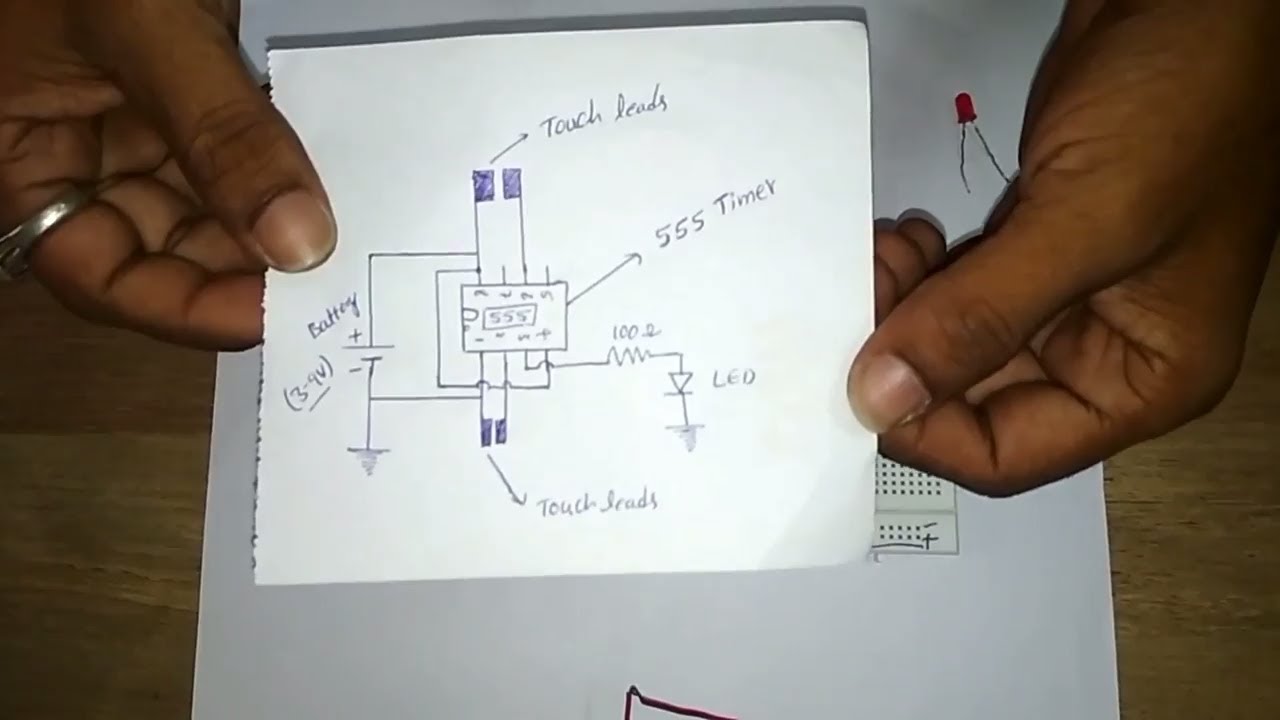 Touch leads
555 Timer
Battery
+
-
(3-9V)
8 7 6 5
555
1 2 3 4
100Ω
LED
Touch leads
-
+